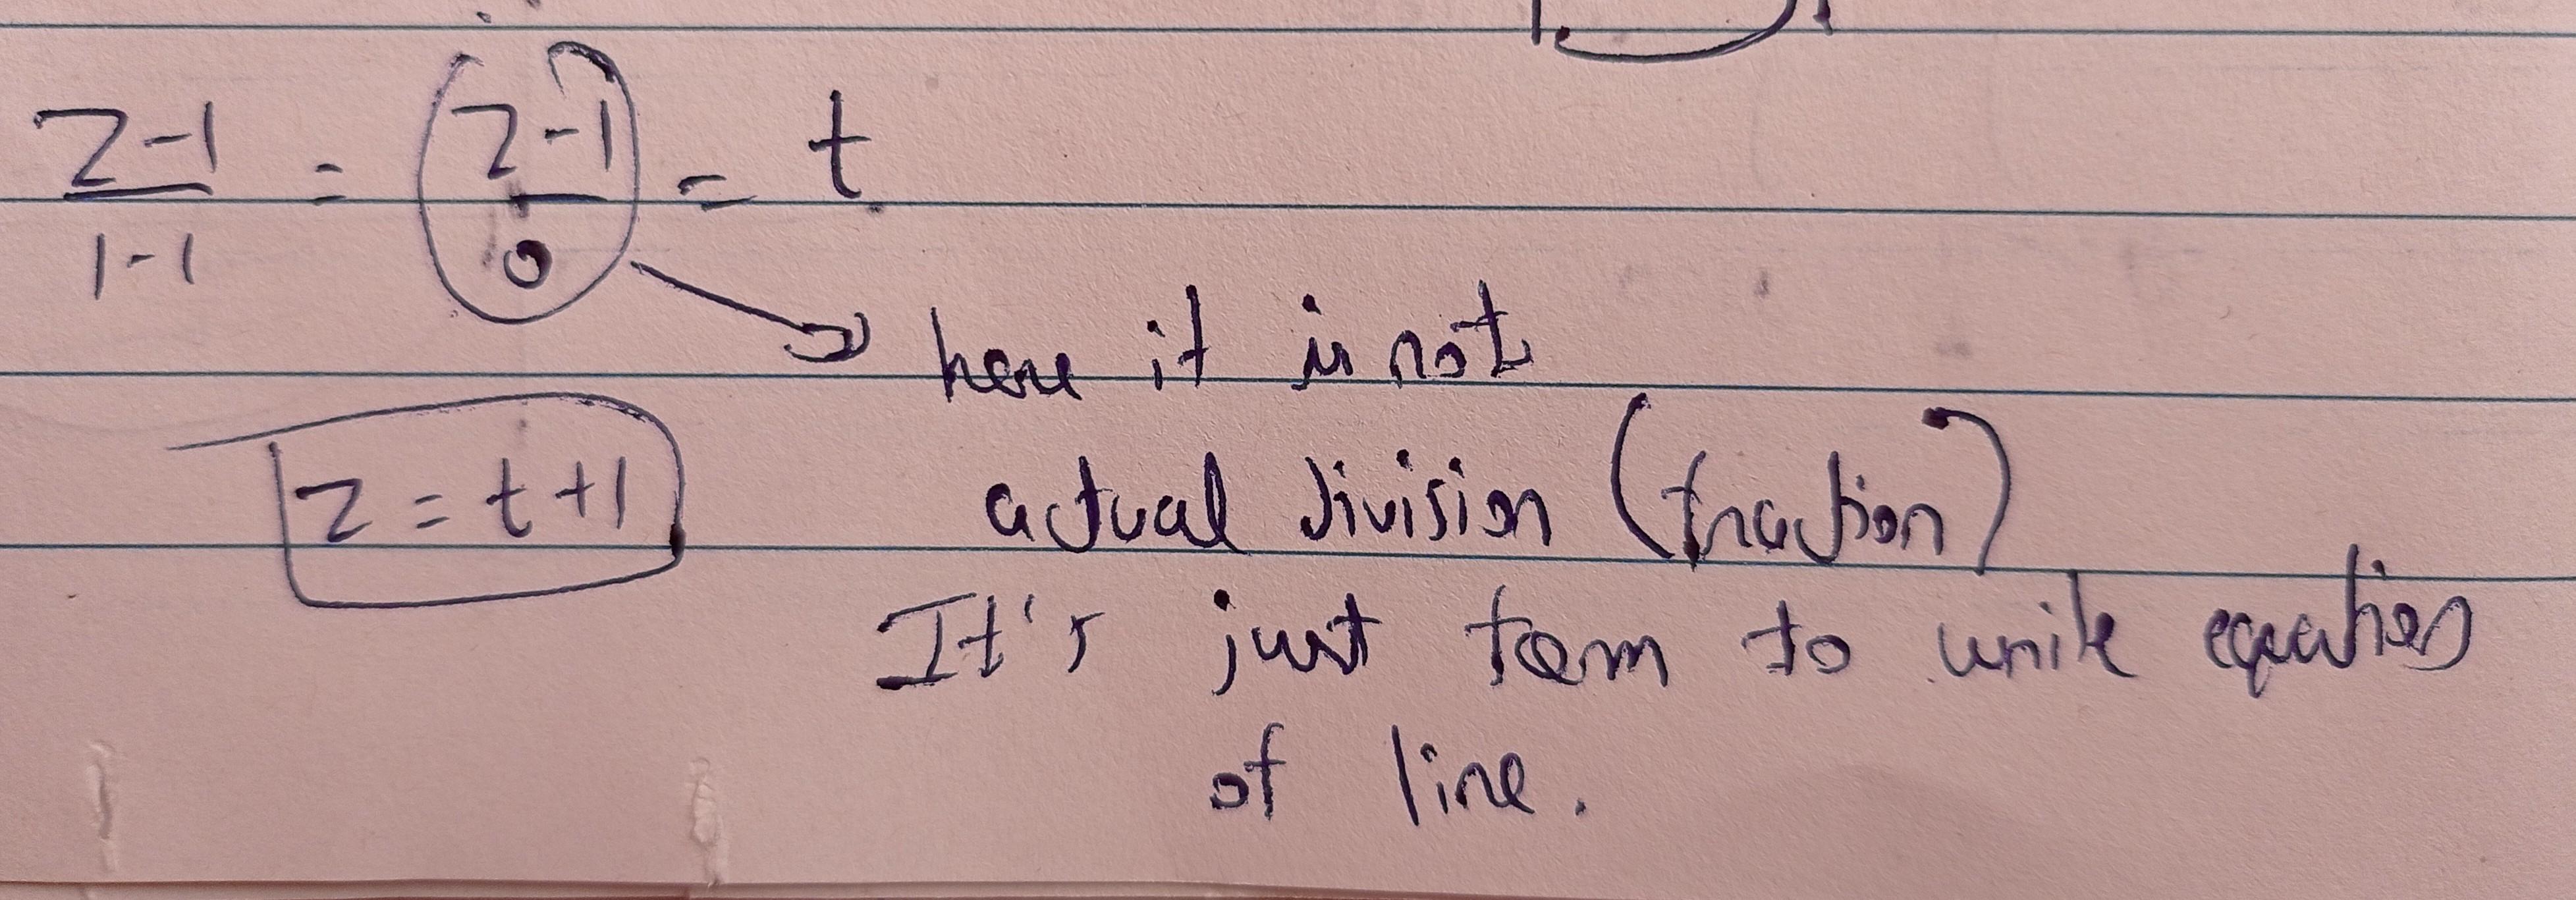 z-1/1-1 = (z-1/0) = t
here it is not
z = t+1
actual division (fraction)
It's just term to write equation
of line.